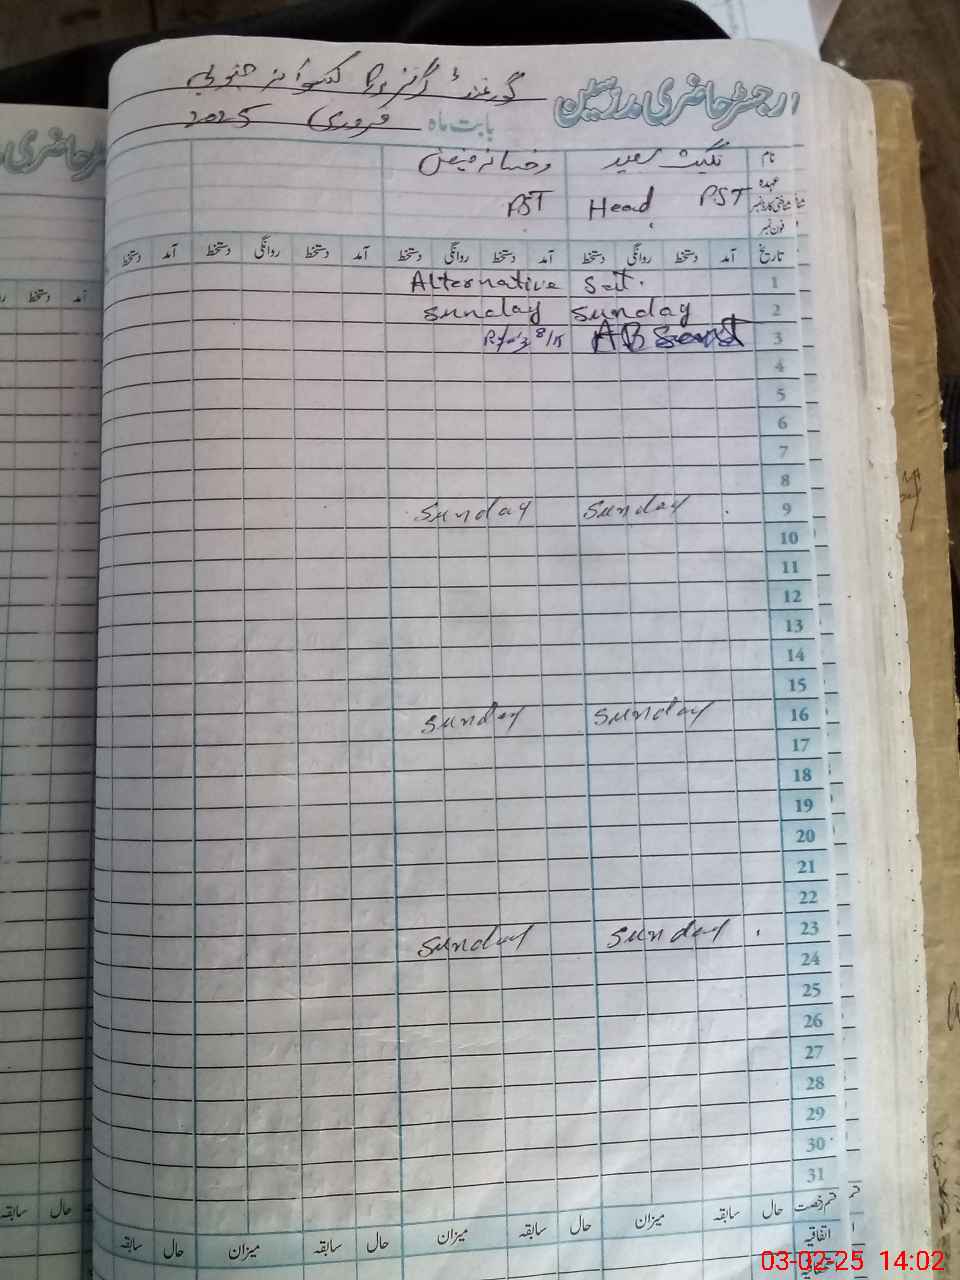 رجسٹر حاضری مدرسین گورنمنٹ گرلز
بابت ماہ فروری 2025
نام نگہت سعید رخسانہ
عہدہ PST Head PST
شناختی کارڈ نمبر
فون نمبر
تاریخ آمد دستخط روانگی دستخط آمد دستخط روانگی دستخط آمد دستخط روانگی دستخط آمد دستخط
1 Alternative Sat.
2 sunday sunday
3 ABSent 8/15
4
5
6
7
8
9 Sunday Sunday
10
11
12
13
14
15
16 Sunday Sunday
17
18
19
20
21
22
23 Sunday Sunday
24
25
26
27
28
29
30
31
قسم رخصت حال سابقہ میزان حال سابقہ میزان حال سابقہ میزان حال سابقہ
اتفاقیہ
03-02-25 14:02